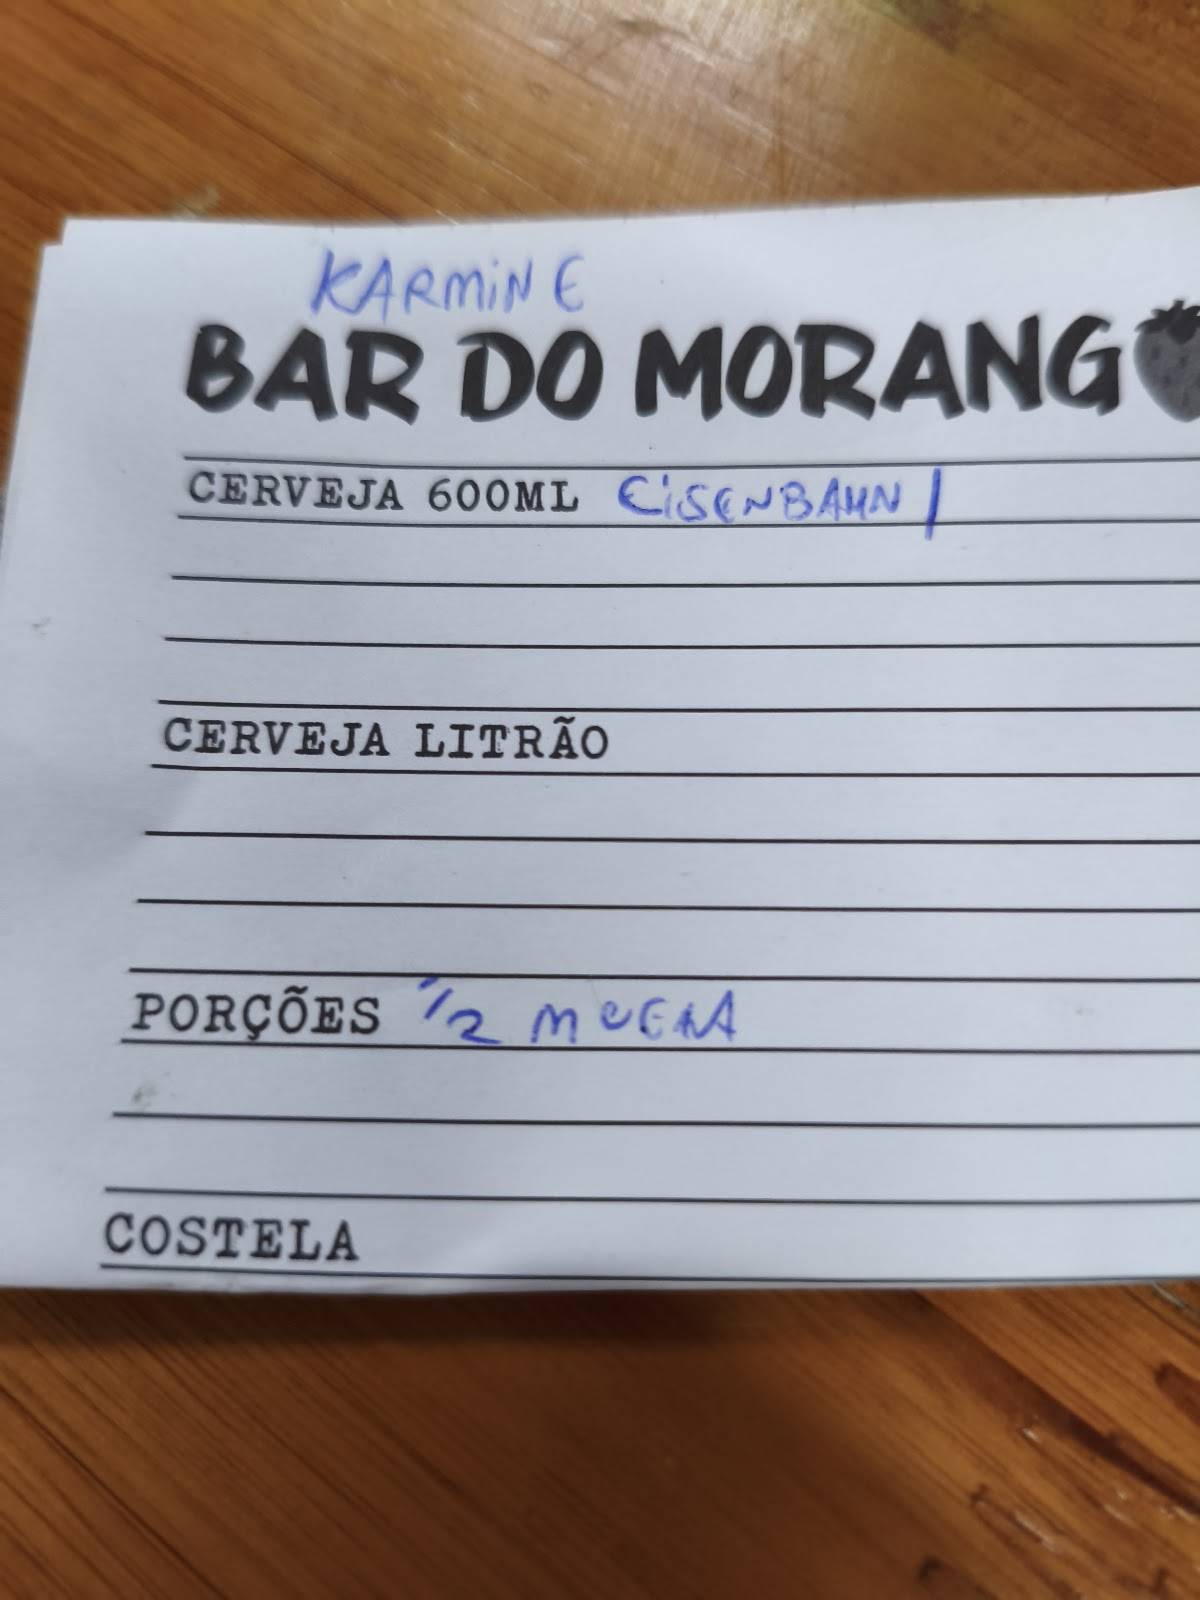 KARMINE
BAR DO MORANG
CERVEJA 600ML EISENBAHN |
CERVEJA LITRÃO
PORÇÕES 1/2 MOELA
COSTELA